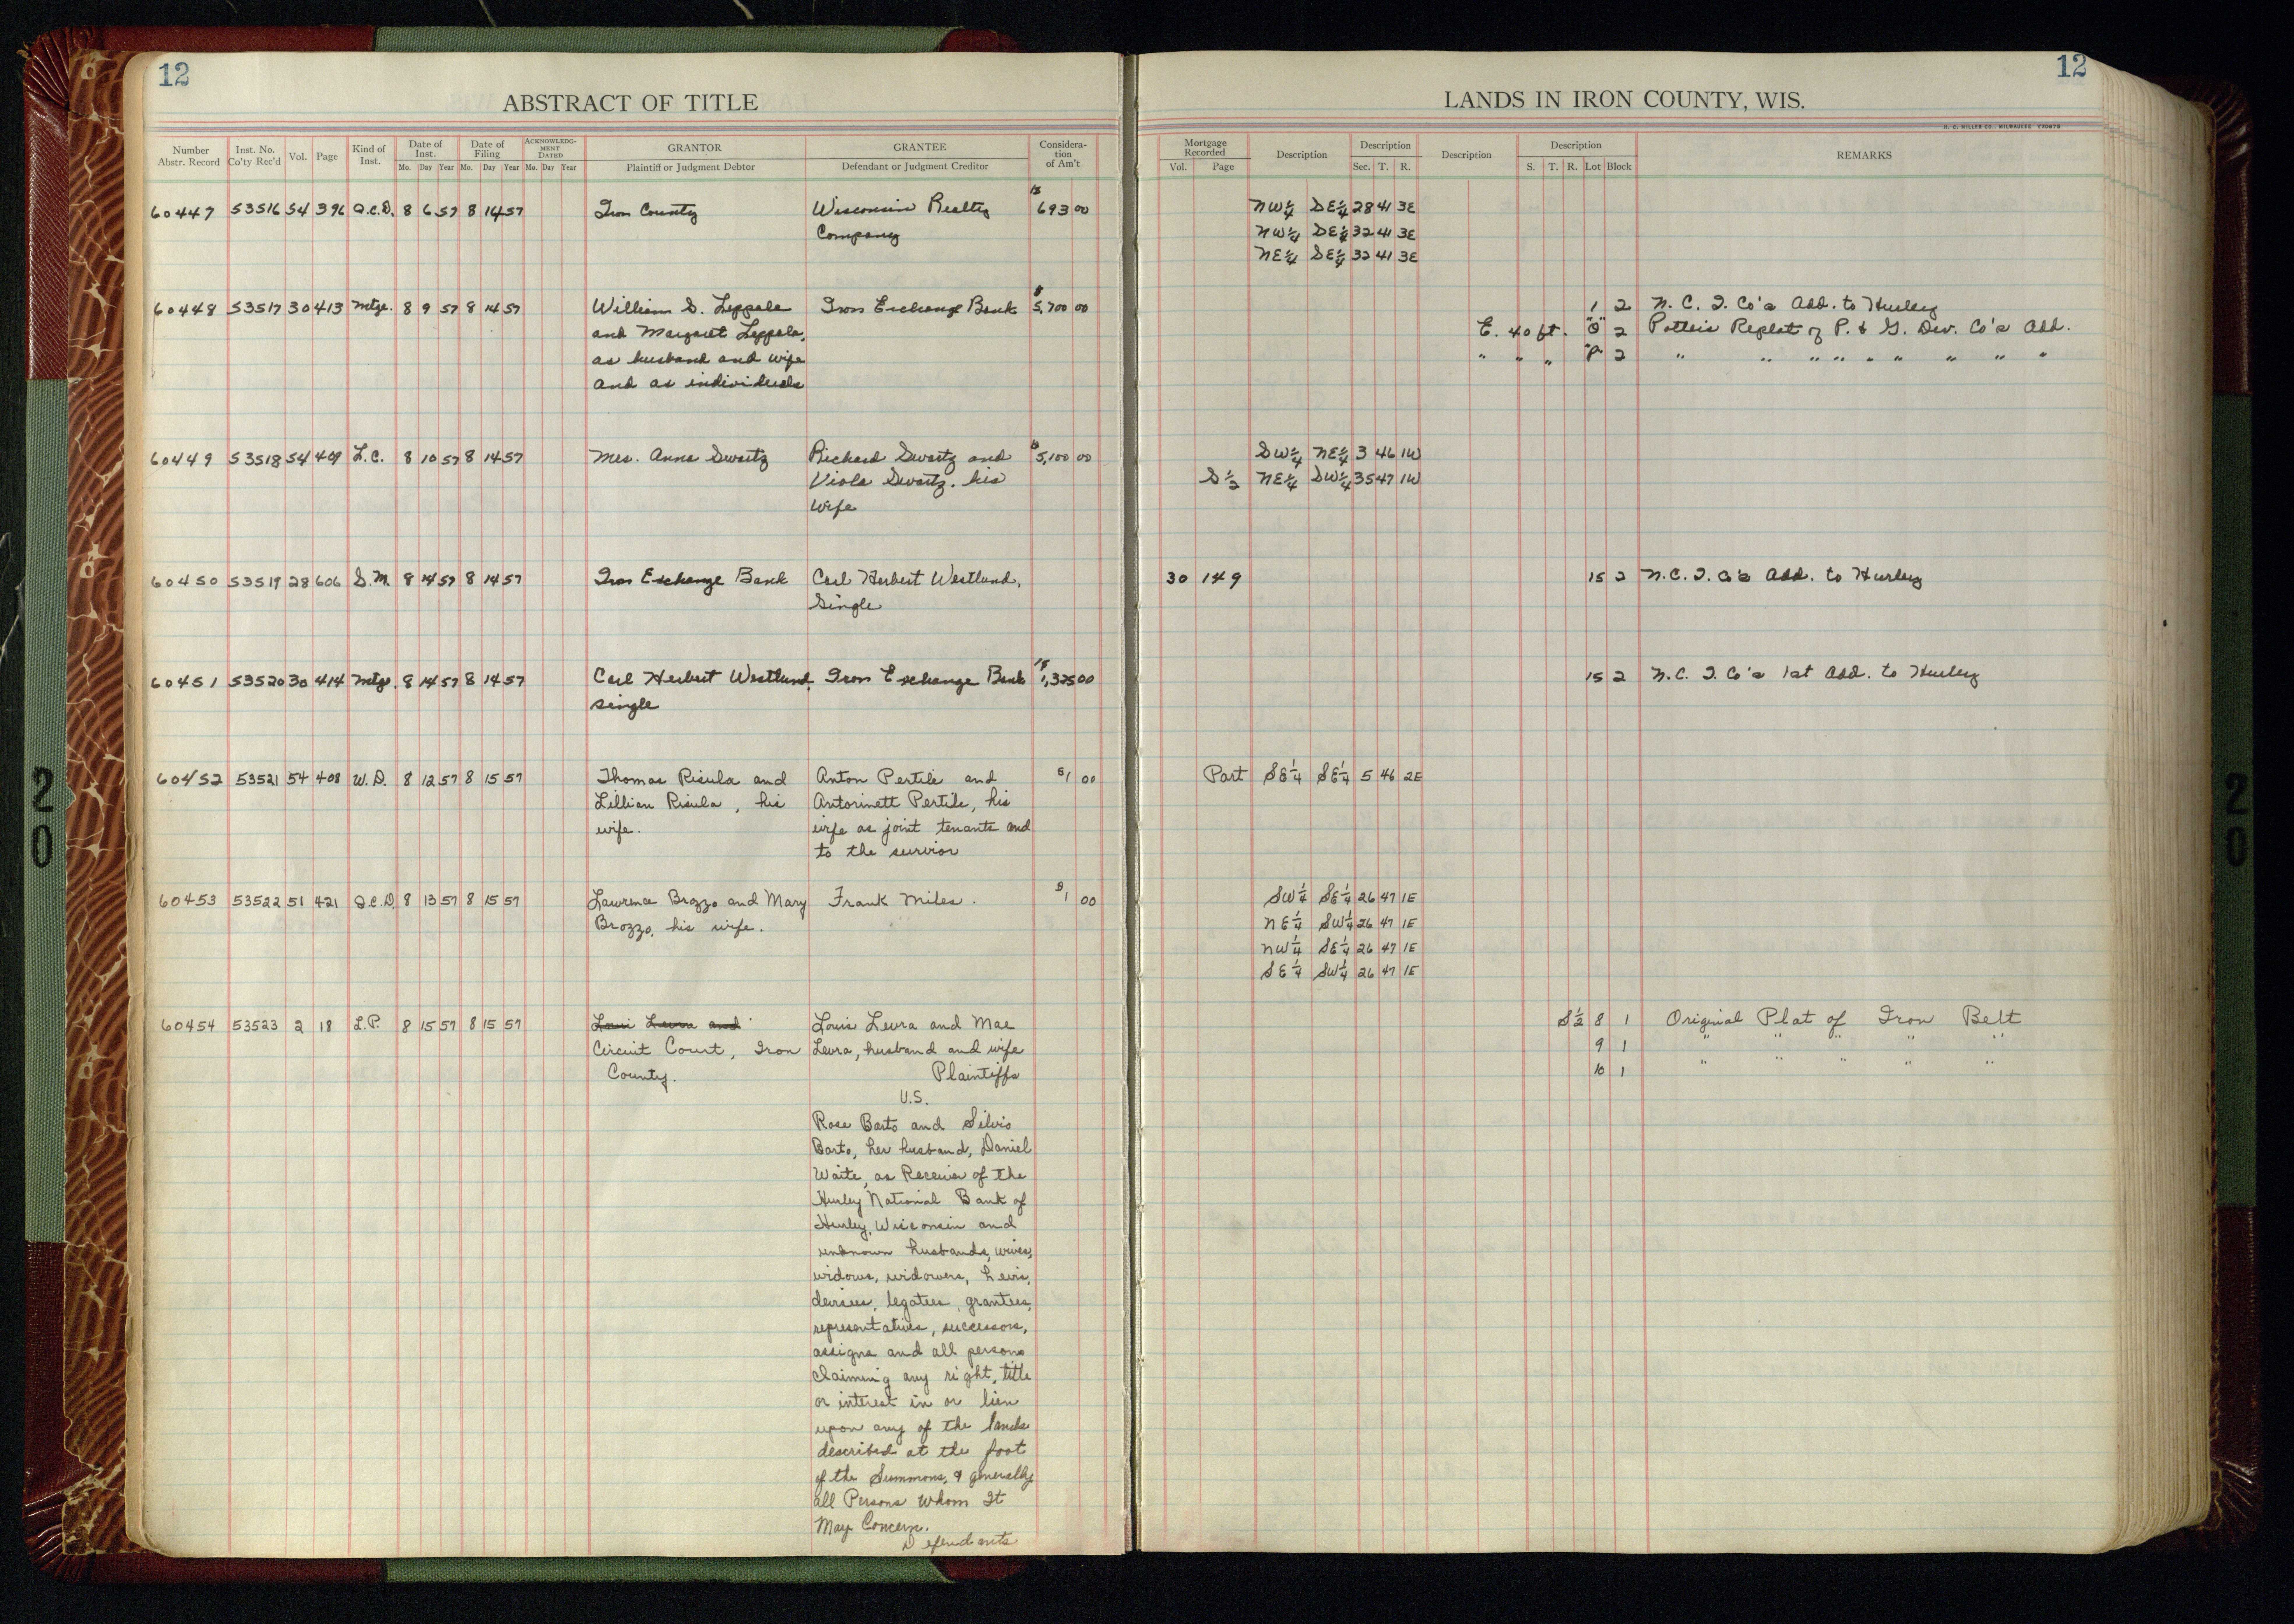 12
ABSTRACT OF TITLE
Number Abstr. Record
Inst. No. Co'ty Rec'd
Vol.
Page
Kind of Inst.
Date of Inst.
Mo. Day Year
Date of Filing
Mo. Day Year
ACKNOWLEDGMENT DATED
Mo. Day Year
GRANTOR
Plaintiff or Judgment Debtor
GRANTEE
Defendant or Judgment Creditor
Consideration of Am't
60447 53516 54 396 Q.C.D. 8 6 57 8 14 57 Iron County Wisconsin Realty $693 00
Company
60448 53517 30 413 Mtge. 8 9 57 8 14 57 William S. Leppala Iron Exchange Bank $5,700 00
and Margaret Leppala,
as husband and wife
and as individuals
60449 53518 54 409 L.C. 8 10 57 8 14 57 Mrs. Anna Swartz Richard Swartz and $5,100 00
Viola Swartz, his
wife
60450 53519 28 606 S.M. 8 14 57 8 14 57 Iron Exchange Bank Carl Herbert Westlund,
Single
60451 53520 30 414 Mtge. 8 14 57 8 14 57 Carl Herbert Westlund, Iron Exchange Bank $1,325 00
single
60452 53521 54 408 W.D. 8 12 57 8 15 57 Thomas Risula and Anton Pertile and $1 00
Lillian Risula, his Antorinett Pertile, his
wife. wife as joint tenants and
to the survior
60453 53522 51 421 Q.C.D. 8 13 57 8 15 57 Lawrence Brozzo and Mary Frank Miles. $1 00
Brozzo, his wife.
60454 53523 2 18 L.P. 8 15 57 8 15 57 Louis Levra and Louis Levra and Mae
Circuit Court, Iron Levra, husband and wife
County. Plaintiffs
V.S.
Rose Barto and Silvio
Barto, her husband, Daniel
Waite, as Receiver of the
Hurley National Bank of
Hurley, Wisconsin and
unknown husbands, wives,
widows, widowers, heirs,
devisees, legatees, grantees,
representatives, successors,
assigns and all persons
claiming any right, title
or interest in or lien
upon any of the lands
described at the foot
of the Summons, & generally
all Persons Whom It
May Concern.
Defendants
12
LANDS IN IRON COUNTY, WIS.
H. C. MILLER CO., MILWAUKEE
Mortgage Recorded
Vol. Page
Description
Description
Sec. T. R.
Description
Description
S. T. R. Lot Block
REMARKS
NW¼ SE¼ 28 41 3E
NW¼ SE¼ 32 41 3E
NE¼ SE¼ 32 41 3E
1 2 N. C. I. Co's Add. to Hurley
E. 40 ft. "O" 2 Potter's Replat of P. & G. Dev. Co's Add.
" " " "P" 2 " " " " " " " " "
SW¼ NE¼ 3 46 1W
S½ NE¼ SW¼ 35 47 1W
30 149 15 2 N.C.I. Co's Add. to Hurley
15 2 N.C. I. Co's 1st Add. to Hurley
Part SE¼ SE¼ 5 46 2E
SW¼ SE¼ 26 47 1E
NE¼ SW¼ 26 47 1E
NW¼ SE¼ 26 47 1E
SE¼ SW¼ 26 47 1E
S½ 8 1 Original Plat of Iron Belt
9 1 " " " " "
10 1 " " " " "
20
20